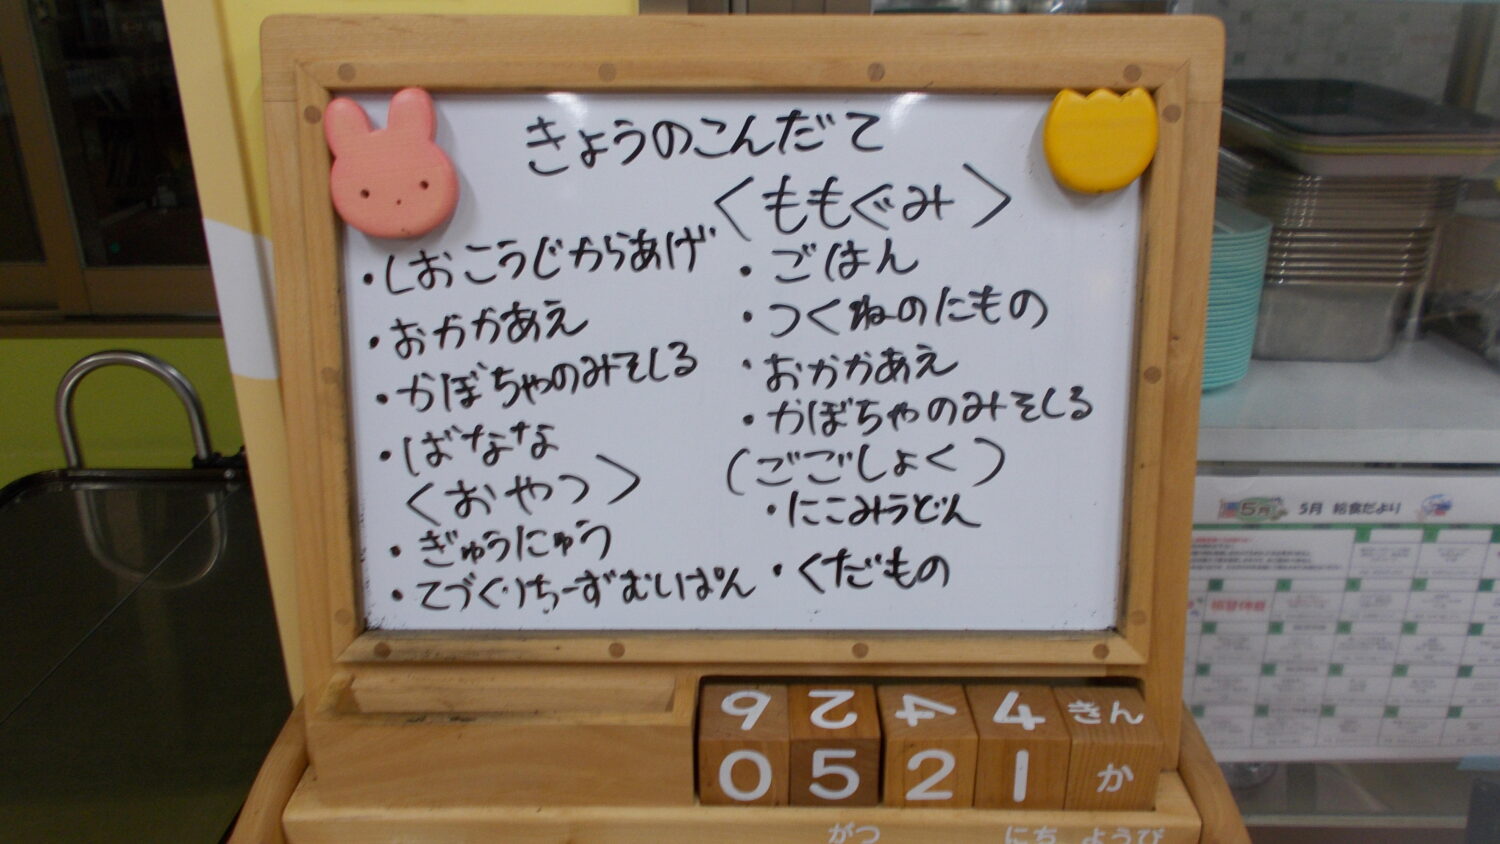 きょうのこんだて
・しおこうじからあげ
・おかかあえ
・かぼちゃのみそしる
・ばなな
〈おやつ〉
・ぎゅうにゅう
・てづくりちーずむしぱん
〈ももぐみ〉
・ごはん
・つくねのにもの
・おかかあえ
・かぼちゃのみそしる
(ごごしょく)
・にこみうどん
・くだもの
きん
05 21 か
がつ にち ようび
5月 給食だより